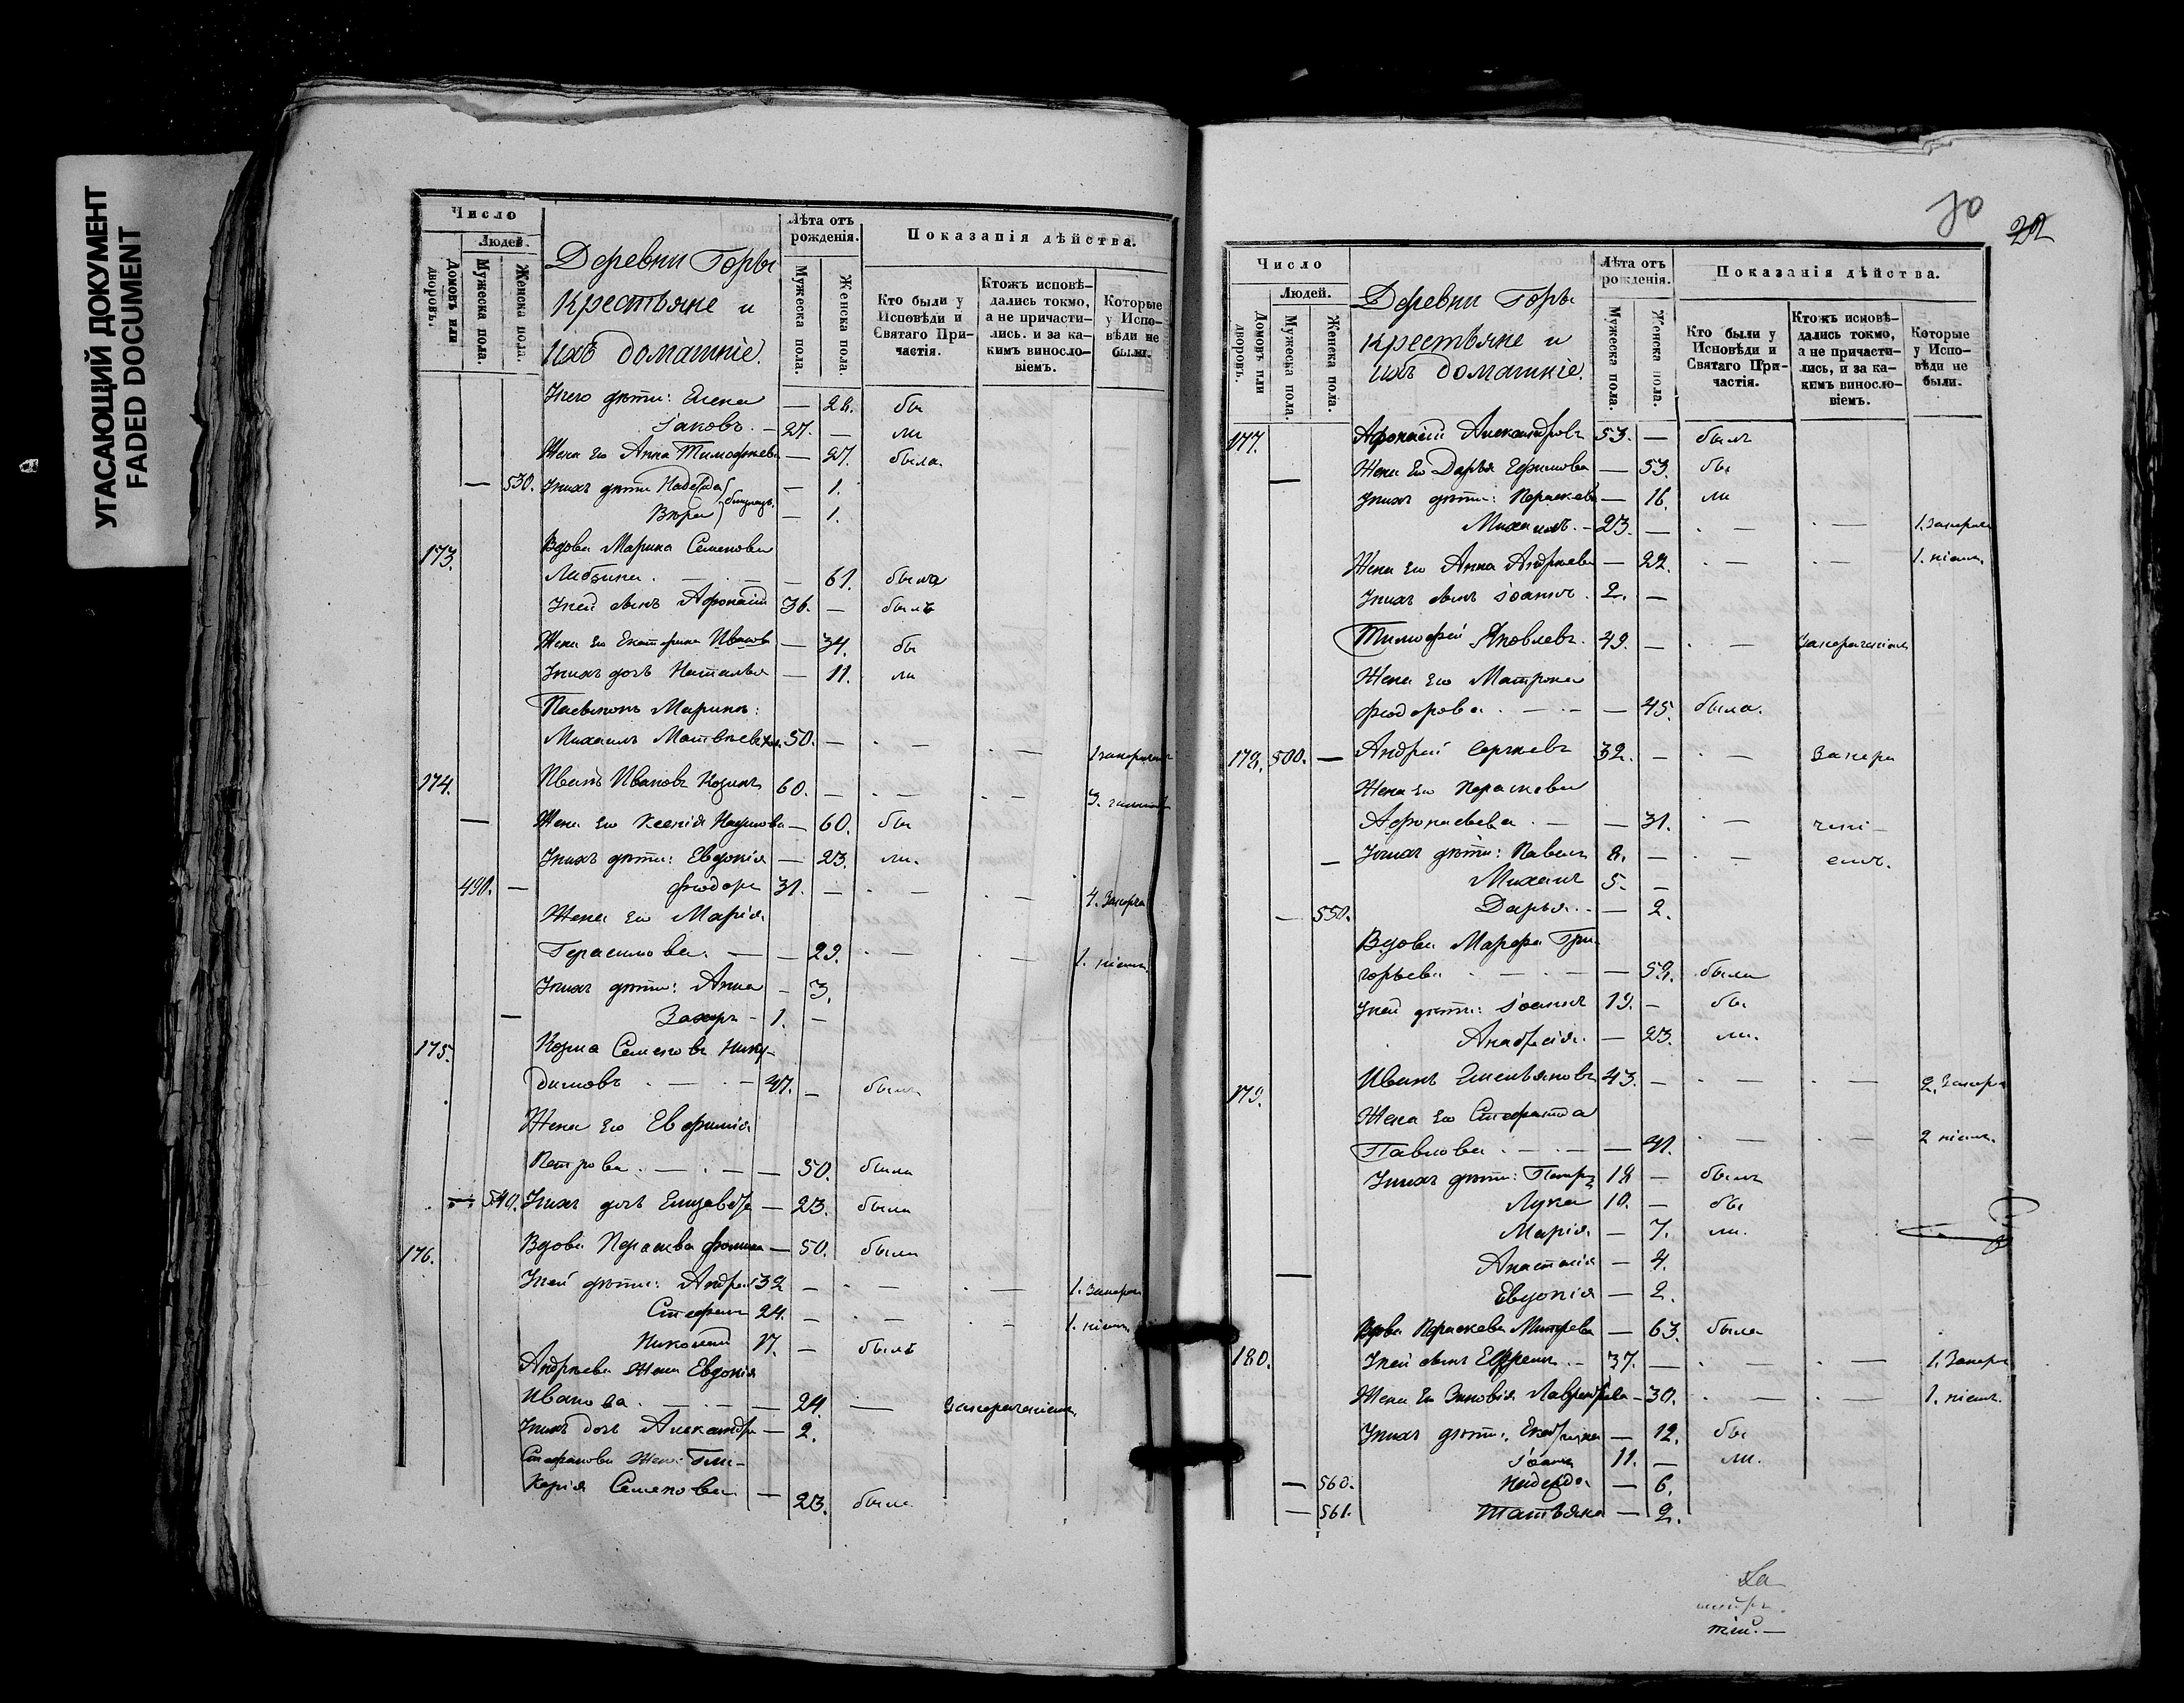 УГАСАЮЩИЙ ДОКУМЕНТ
FADED DOCUMENT
Число
Людей.
Домовъ или дворовъ.
Мужеска пола.
Женска пола.
Деревни Горы
Крестьяне и
ихъ домашніе.
Лѣта отъ рожденія.
Мужеска пола.
Женска пола.
Показанія дѣйства.
Кто были у Исповѣди и Святаго Причастія.
Ктожъ исповѣдались токмо, а не причастились. и за какимъ винословіемъ.
Которые у Исповѣди не были.
У него дѣти: Елена — 28. бы
Іаковъ. — 27. — ли
Жена его Анна Тимофѣева — 27. была.
— 530. У нихъ дѣти Надежда — 1.
Вѣра близнецы. — 1.
173. Вдова Марина Семенова
— 61. была
У ней сынъ Афонасій 36. — былъ
Жена его Екатерина Иванова — 34. бы
У нихъ дочь Наталья — 11. ли
Пасынокъ Марины:
Михаилъ Матвѣевъ 50. — . — . —
174. Иванъ Ивановъ Козинъ 60. — . — . — 3.
— Жена его Ксенія Наумова — 60. бы
У нихъ дѣти: Евдокія — 23. ли.
490. — Ѳеодоръ 31. — . — . — 4. Занерач
Жена его Марія
Герасимова. — — 29. . — . — 1. ніемъ.
У нихъ дѣти: Анна — 3.
— Захаръ — 1. —
175. Козма Семеновъ Нику-
димовъ . — . — 47. — былъ
Жена его Евфимія
Петрова . — . — — 50. была
— 540. У нихъ дочь Елизавета — 23. была
176. Вдова Параскева Фомина — 50. была
У ней дѣти: Андрей 32 — . — . — 1. Занерач
Стефанъ 24. — . — . — 1. ніемъ.
Николай 17. — былъ
Андреева жена Евдокія
Иванова. — . — — 24. — Занераченіемъ.
У нихъ дочь Александра — 2.
Стефанова жена Гли-
керія Семенова — 23. была
70
22
Число
Людей.
Домовъ или дворовъ.
Мужеска пола.
Женска пола.
Деревни Горы
крестьяне и
ихъ домашніе.
Лѣта отъ рожденія.
Мужеска пола.
Женска пола.
Показанія дѣйства.
Кто были у Исповѣди и Святаго Причастія.
Ктожъ исповѣдались токмо, а не причастились, и за какимъ винословіемъ.
Которые у Исповѣди не были.
177. Афонасій Александровъ 53. — былъ
— Жена его Дарья Ефимова — 53. бы
У нихъ дѣти: Параскева — 16. ли
Михаилъ. — 23. — . — . — 1. Занерач
Жена его Анна Андреева — 22. . — . — 1. ніемъ.
У нихъ сынъ Іоаннъ . 2. —
Тимофей Яковлевъ. 49. — . — Занераченіемъ
Жена его Матрона
Ѳеодорова . — . — — 45. была.
178. 500. — Андрей Сергѣевъ 32. — . — Занера
Жена его Параскева
Афонасьева . — — 31. . — чені-
— У нихъ дѣти: Павелъ 8. — . — емъ.
Михаилъ 5. —
— 550. Дарья. — — 2.
Вдова Марфа Гри-
горьева . — . — — 52. была
У ней дѣти: Іоаннъ 19. — бы
Анастасія. — 23. ли.
179. Иванъ Емельяновъ 43. — . — . — 2. Занера
Жена его Стефанида
Павлова . — . — — 41. . — . — 2 ніемъ.
У нихъ дѣти: Петръ 18 — былъ
Лука 10. — бы
Марія — 7. ли.
— Анастасія — 4.
Евдокія — 2.
Вдова Параскева Митрева — 63. была
180. У ней сынъ Ефремъ . — 37. — . — . — 1. Занера
Жена его Зиновія Лаврентьева — 30. . — . — 1. ніемъ.
У нихъ дѣти: Екатерина — 12. бы
Іоаннъ 11. — ли.
— 560. Надежда — 6.
— 561. Татьяна — 2.